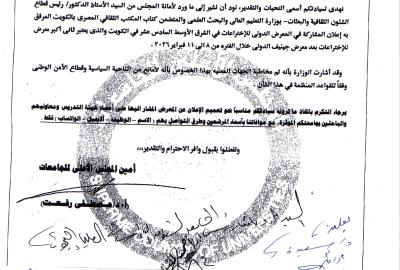 نهدى لسيادتكم أسمى التحيات والتقدير، نود أن نشير إلى ما ورد لأمانة المجلس من السيد الأستاذ الدكتور/ رئيس قطاع
الشئون الثقافية والبعثات- بوزارة التعليم العالى والبحث العلمى والمتضمن كتاب المكتب الثقافى المصرى بالكويت المرفق
به إعلان المشاركة في المعرض الدولى للإختراعات في الشرق الأوسط السادس عشر في الكويت والذى يعتبر ثانى أكبر معرض
للإختراعات بعد معرض جينيف الدولى خلال الفتره من ٨ الى ١١ فبراير ٢٠٢٦.
وقد أشارت الوزارة بأنه تم مخاطبة الجهات المعنيه بهذا الخصوص بأنه لامانع من الناحية السياسية وقطاع الأمن الوطنى
وفقاً للقواعد المنظمة في هذا الشأن.
برجاء التكرم باتخاذ ماترونه سيادتكم مناسباً نحو تعميم الإعلان عن المعرض المشار اليها على أعضاء هيئة التدريس ومعاونيهم
والباحثين بجامعتكم الموقرة، مع موافاتنا بأسماء المرشحين وطرق التواصل بهم : الاسم - الوظيفة - الايميل - الواتساب ; فقط .
وتفضلوا بقبول وافر الاحترام والتقدير...
أمين المجلس الأعلى للجامعات
أ.د/ مصطفى رفعت